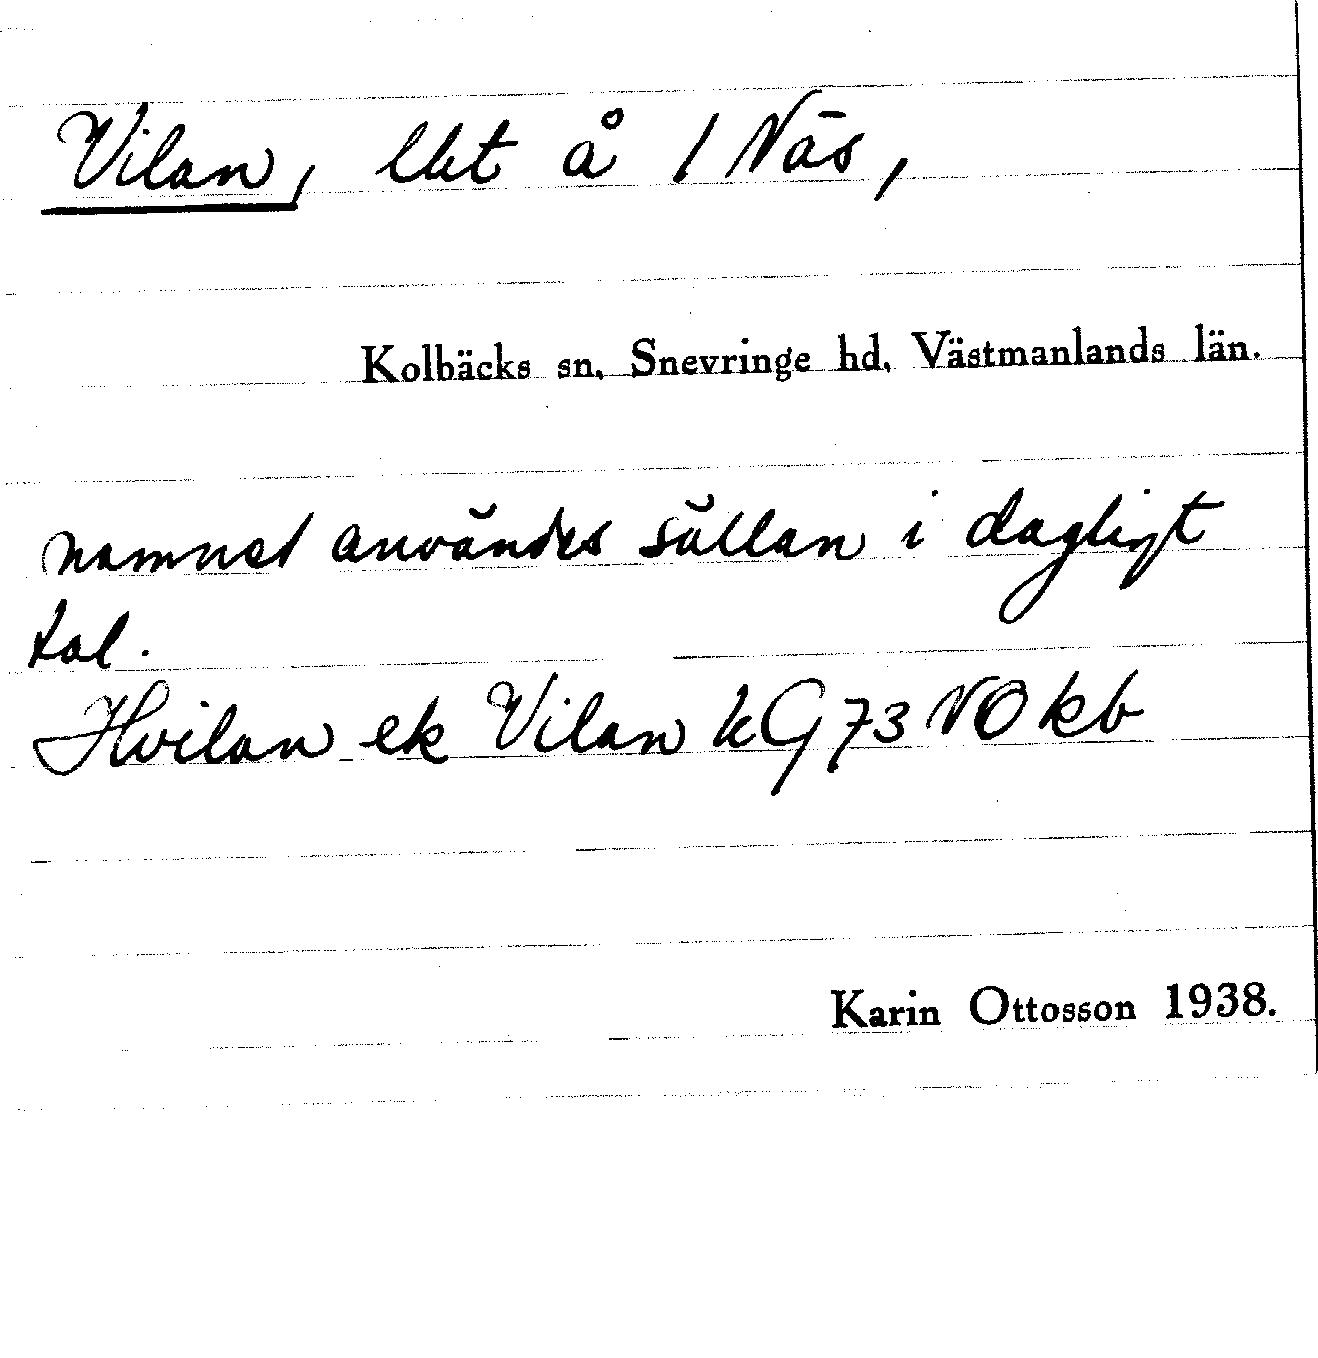 Vilan, lht å 1 Näs,
Kolbäcks sn, Snevringe hd, Västmanlands län.
namnet användes sällan i dagligt
tal.
Hvilan ek Vilan kG73 NO kb
Karin Ottosson 1938.